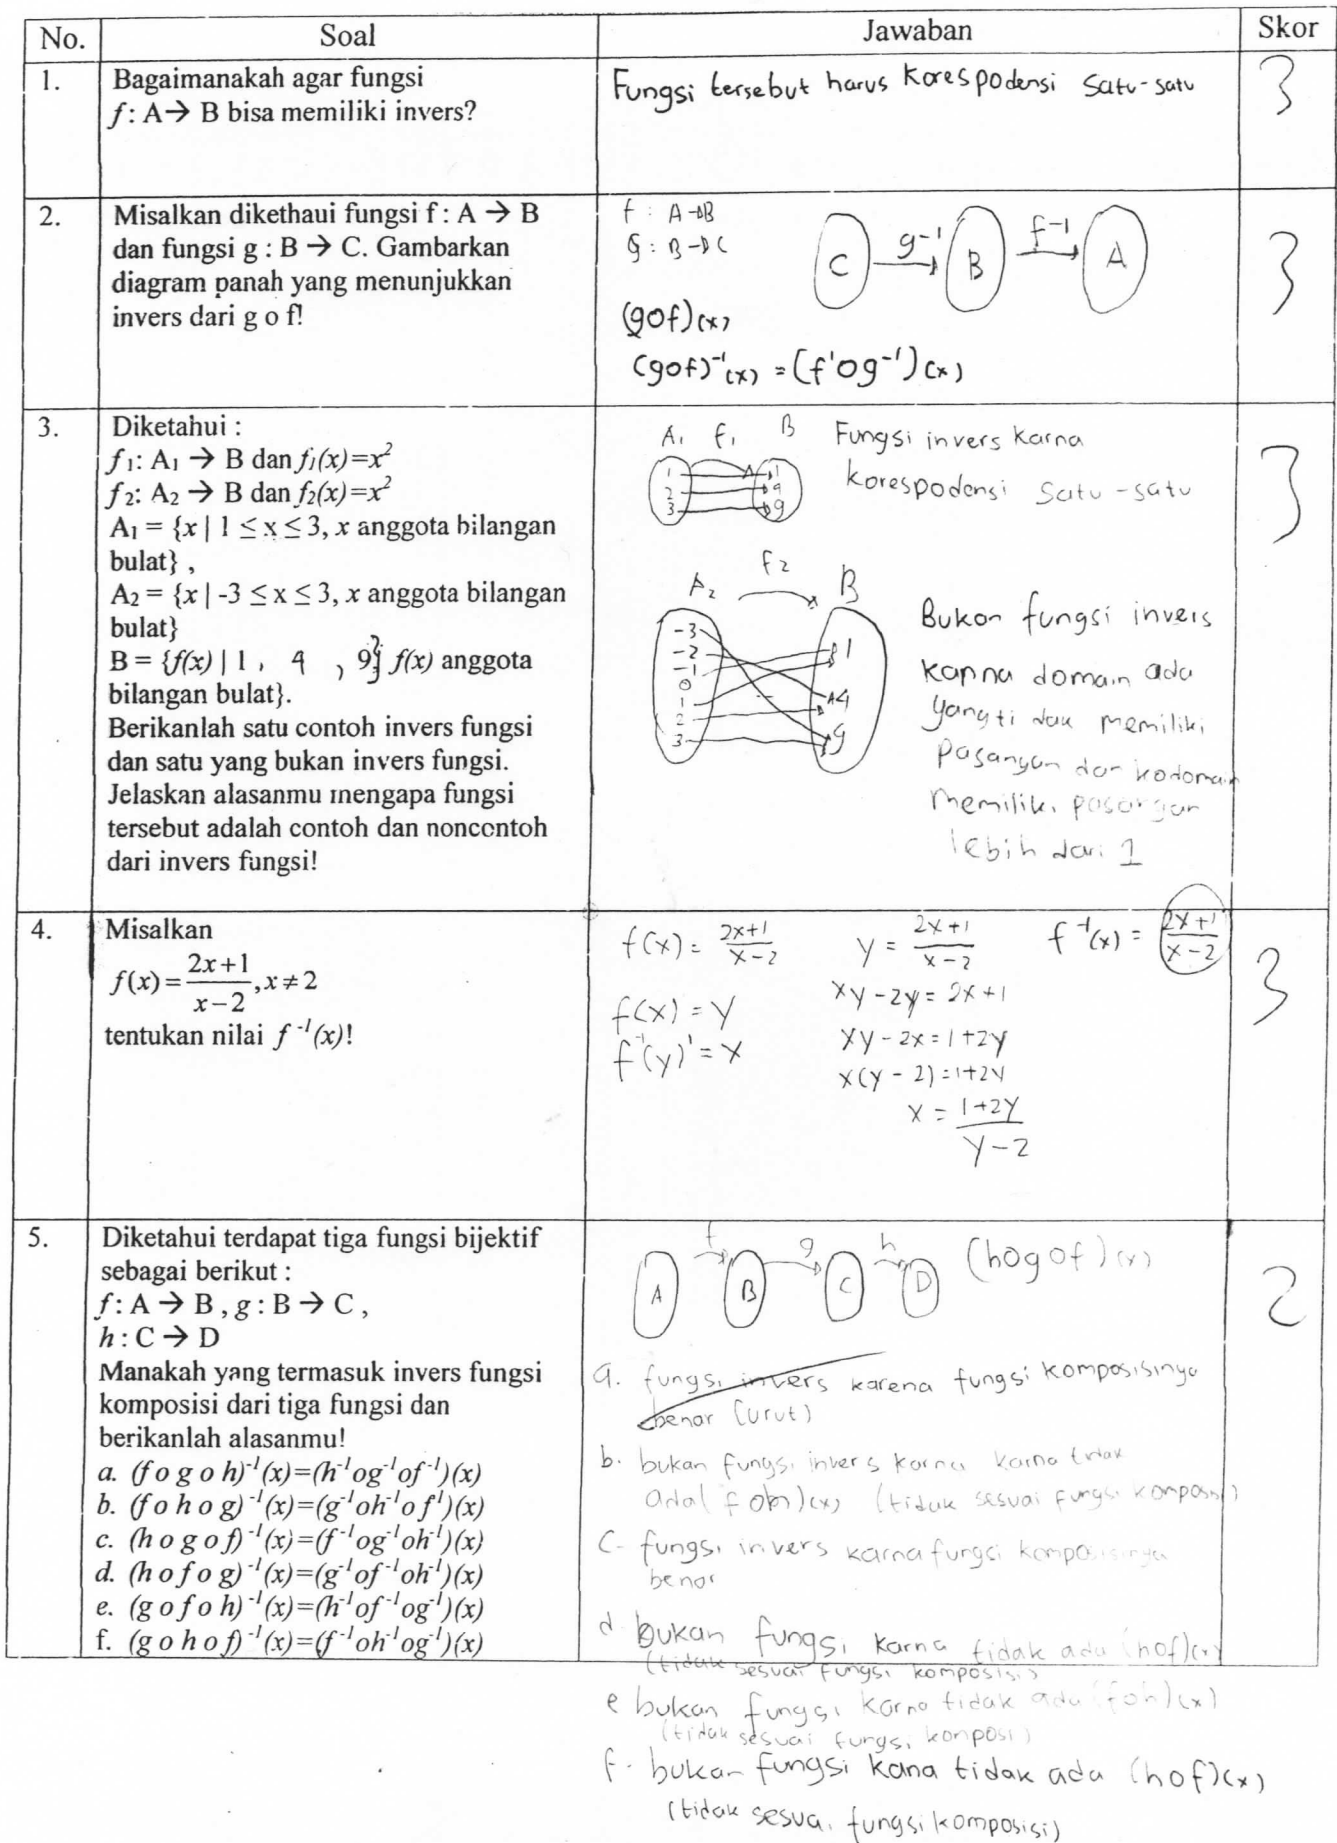 No. Soal Jawaban Skor
1. Bagaimanakah agar fungsi
f : A → B bisa memiliki invers?
Fungsi tersebut harus Korespodensi Satu-satu
3
2. Misalkan dikethaui fungsi f : A → B
dan fungsi g : B → C. Gambarkan
diagram panah yang menunjukkan
invers dari g o f!
f : A → B
g : B → C
C g⁻¹ B f⁻¹ A
(gof)(x)
(gof)⁻¹(x) = (f¹og⁻¹)(x)
3
3. Diketahui :
f₁: A₁ → B dan f₁(x)=x²
f₂: A₂ → B dan f₂(x)=x²
A₁ = {x | 1 ≤ x ≤ 3, x anggota bilangan
bulat} ,
A₂ = {x | -3 ≤ x ≤ 3, x anggota bilangan
bulat}
B = {f(x) | 1 , 4 , 9} f(x) anggota
bilangan bulat}.
Berikanlah satu contoh invers fungsi
dan satu yang bukan invers fungsi.
Jelaskan alasanmu mengapa fungsi
tersebut adalah contoh dan noncontoh
dari invers fungsi!
A₁ f₁ B
1 1
2 4
3 9
Fungsi invers Karna
korespodensi Satu-satu
A₂ f₂ B
-3
-2
-1
0
1
2
3
1
4
9
Bukan fungsi invers
karna domain ada
yang tidak memiliki
Pasangan dan kodomain
memiliki pasangan
lebih dari 1
3
4. Misalkan
f(x) = 2x+1 / x−2, x ≠ 2
tentukan nilai f⁻¹(x)!
f(x) = 2x+1 / x−2
f(x) = y
f⁻¹(y) = x
y = 2x+1 / x−2
xy − 2y = 2x+1
xy − 2x = 1+2y
x(y − 2) = 1+2y
x = 1+2y / y−2
f⁻¹(x) = 2x+1 / x−2
3
5. Diketahui terdapat tiga fungsi bijektif
sebagai berikut :
f : A → B , g : B → C ,
h : C → D
Manakah yang termasuk invers fungsi
komposisi dari tiga fungsi dan
berikanlah alasanmu!
a. (f o g o h)⁻¹(x)=(h⁻¹og⁻¹of⁻¹)(x)
b. (f o h o g)⁻¹(x)=(g⁻¹oh⁻¹o f¹)(x)
c. (h o g o f)⁻¹(x)=(f⁻¹og⁻¹oh⁻¹)(x)
d. (h o f o g)⁻¹(x)=(g⁻¹of⁻¹oh⁻¹)(x)
e. (g o f o h)⁻¹(x)=(h⁻¹of⁻¹og⁻¹)(x)
f. (g o h o f)⁻¹(x)=(f⁻¹oh⁻¹og⁻¹)(x)
A f B g C h D (hogof)(x)
a. fungsi invers karena fungsi komposisinya
benar (urut)
b. bukan fungsi invers karna karna tidak
ada (foh)(x) (tidak sesuai fungsi komposisi)
c. fungsi invers karna fungsi komposisinya
benar
d. bukan fungsi karna tidak ada (hof)(x)
(tidak sesuai fungsi komposisi)
e bukan fungsi karna tidak ada (foh)(x)
(tidak sesuai fungsi komposi)
f. bukan fungsi kana tidak ada (hof)(x)
(tidak sesuai fungsi komposisi)
2